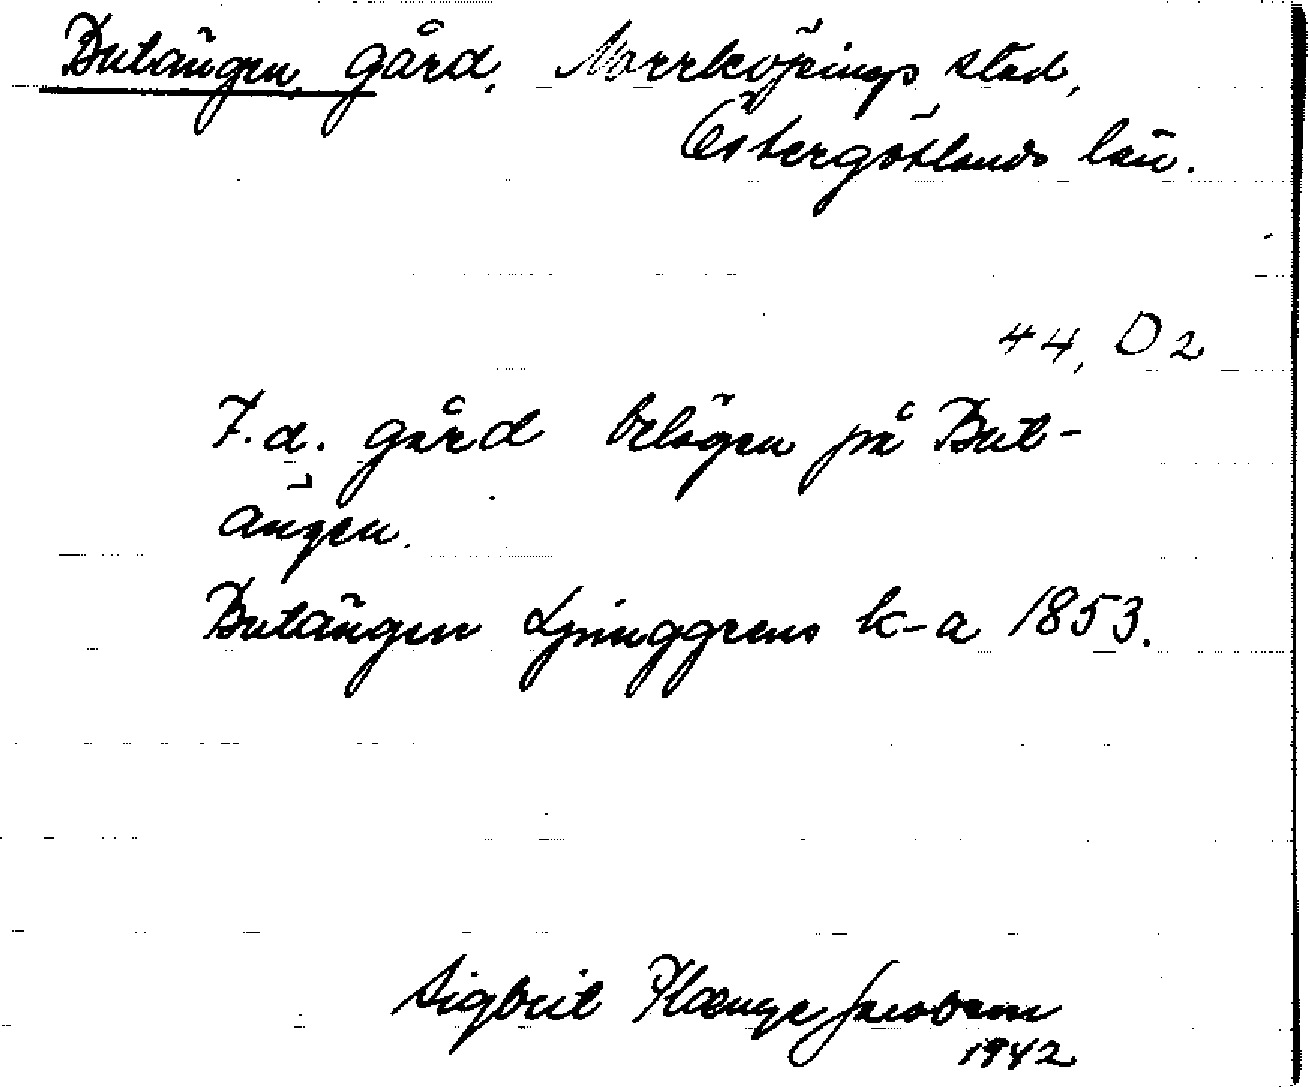 Butängen, gård, Norrköpings stad,
Östergötlands län.
44, D 2
F.d. gård belägen på But-
ängen.
Butängen Ljunggrens k-a 1853.
Sigbrit Plænge Jacobson
1942